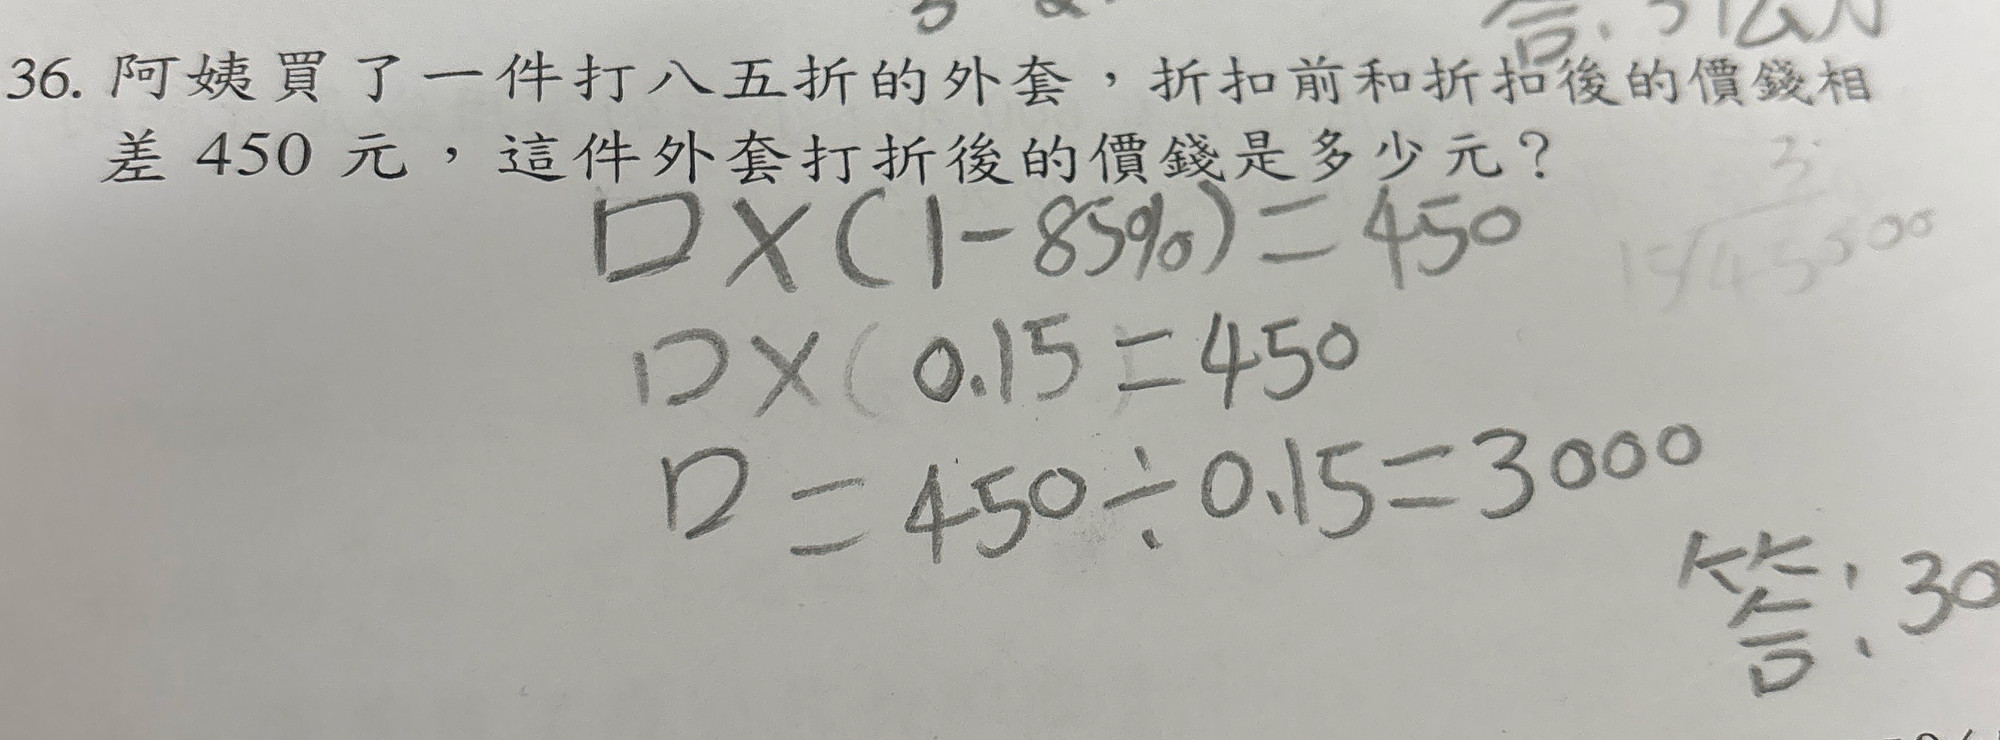 答:
36. 阿姨買了一件打八五折的外套，折扣前和折扣後的價錢相
差 450 元，這件外套打折後的價錢是多少元？
□×(1-85%)=450
□×(0.15)=450
□=450÷0.15=3000
答:30
3
15